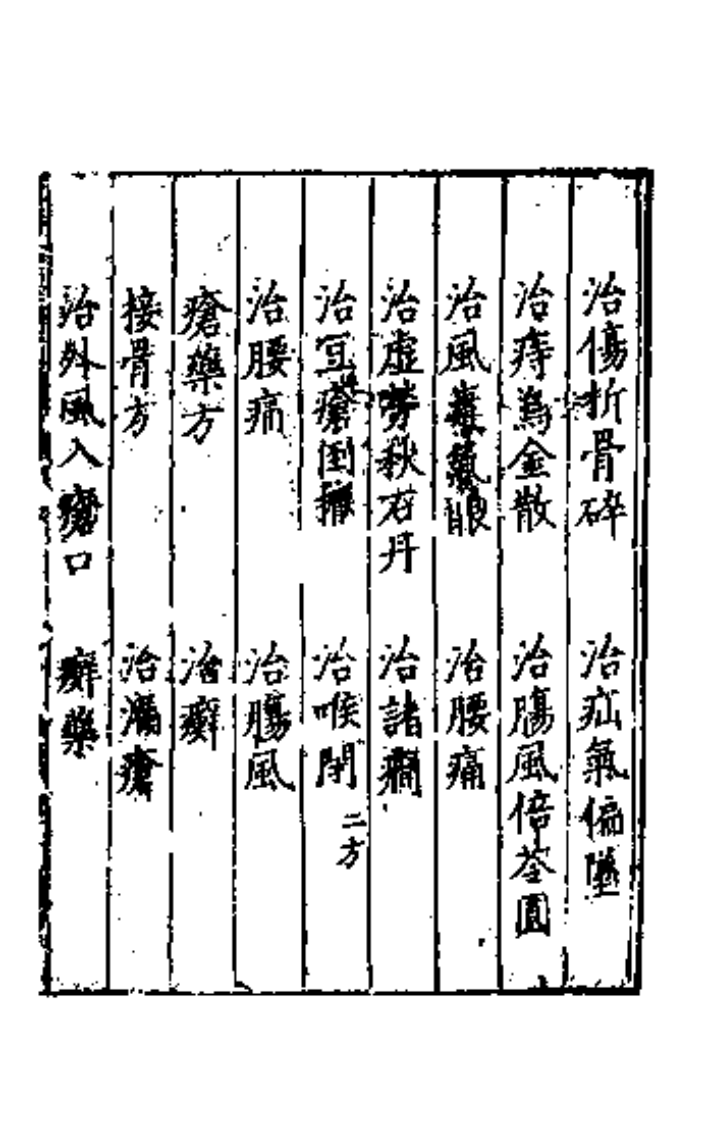 治傷折骨碎　治疝氣偏墜
治痔烏金散　治腸風倍荃圓
治風毒氣眼　治腰痛
治虛勞秋石丹　治諸癇
治豆瘡倒攧　治喉閉二方
治腰痛　治腸風
瘡藥方　治癬
接骨方　治漏瘡
治外風入瘡口　癬藥